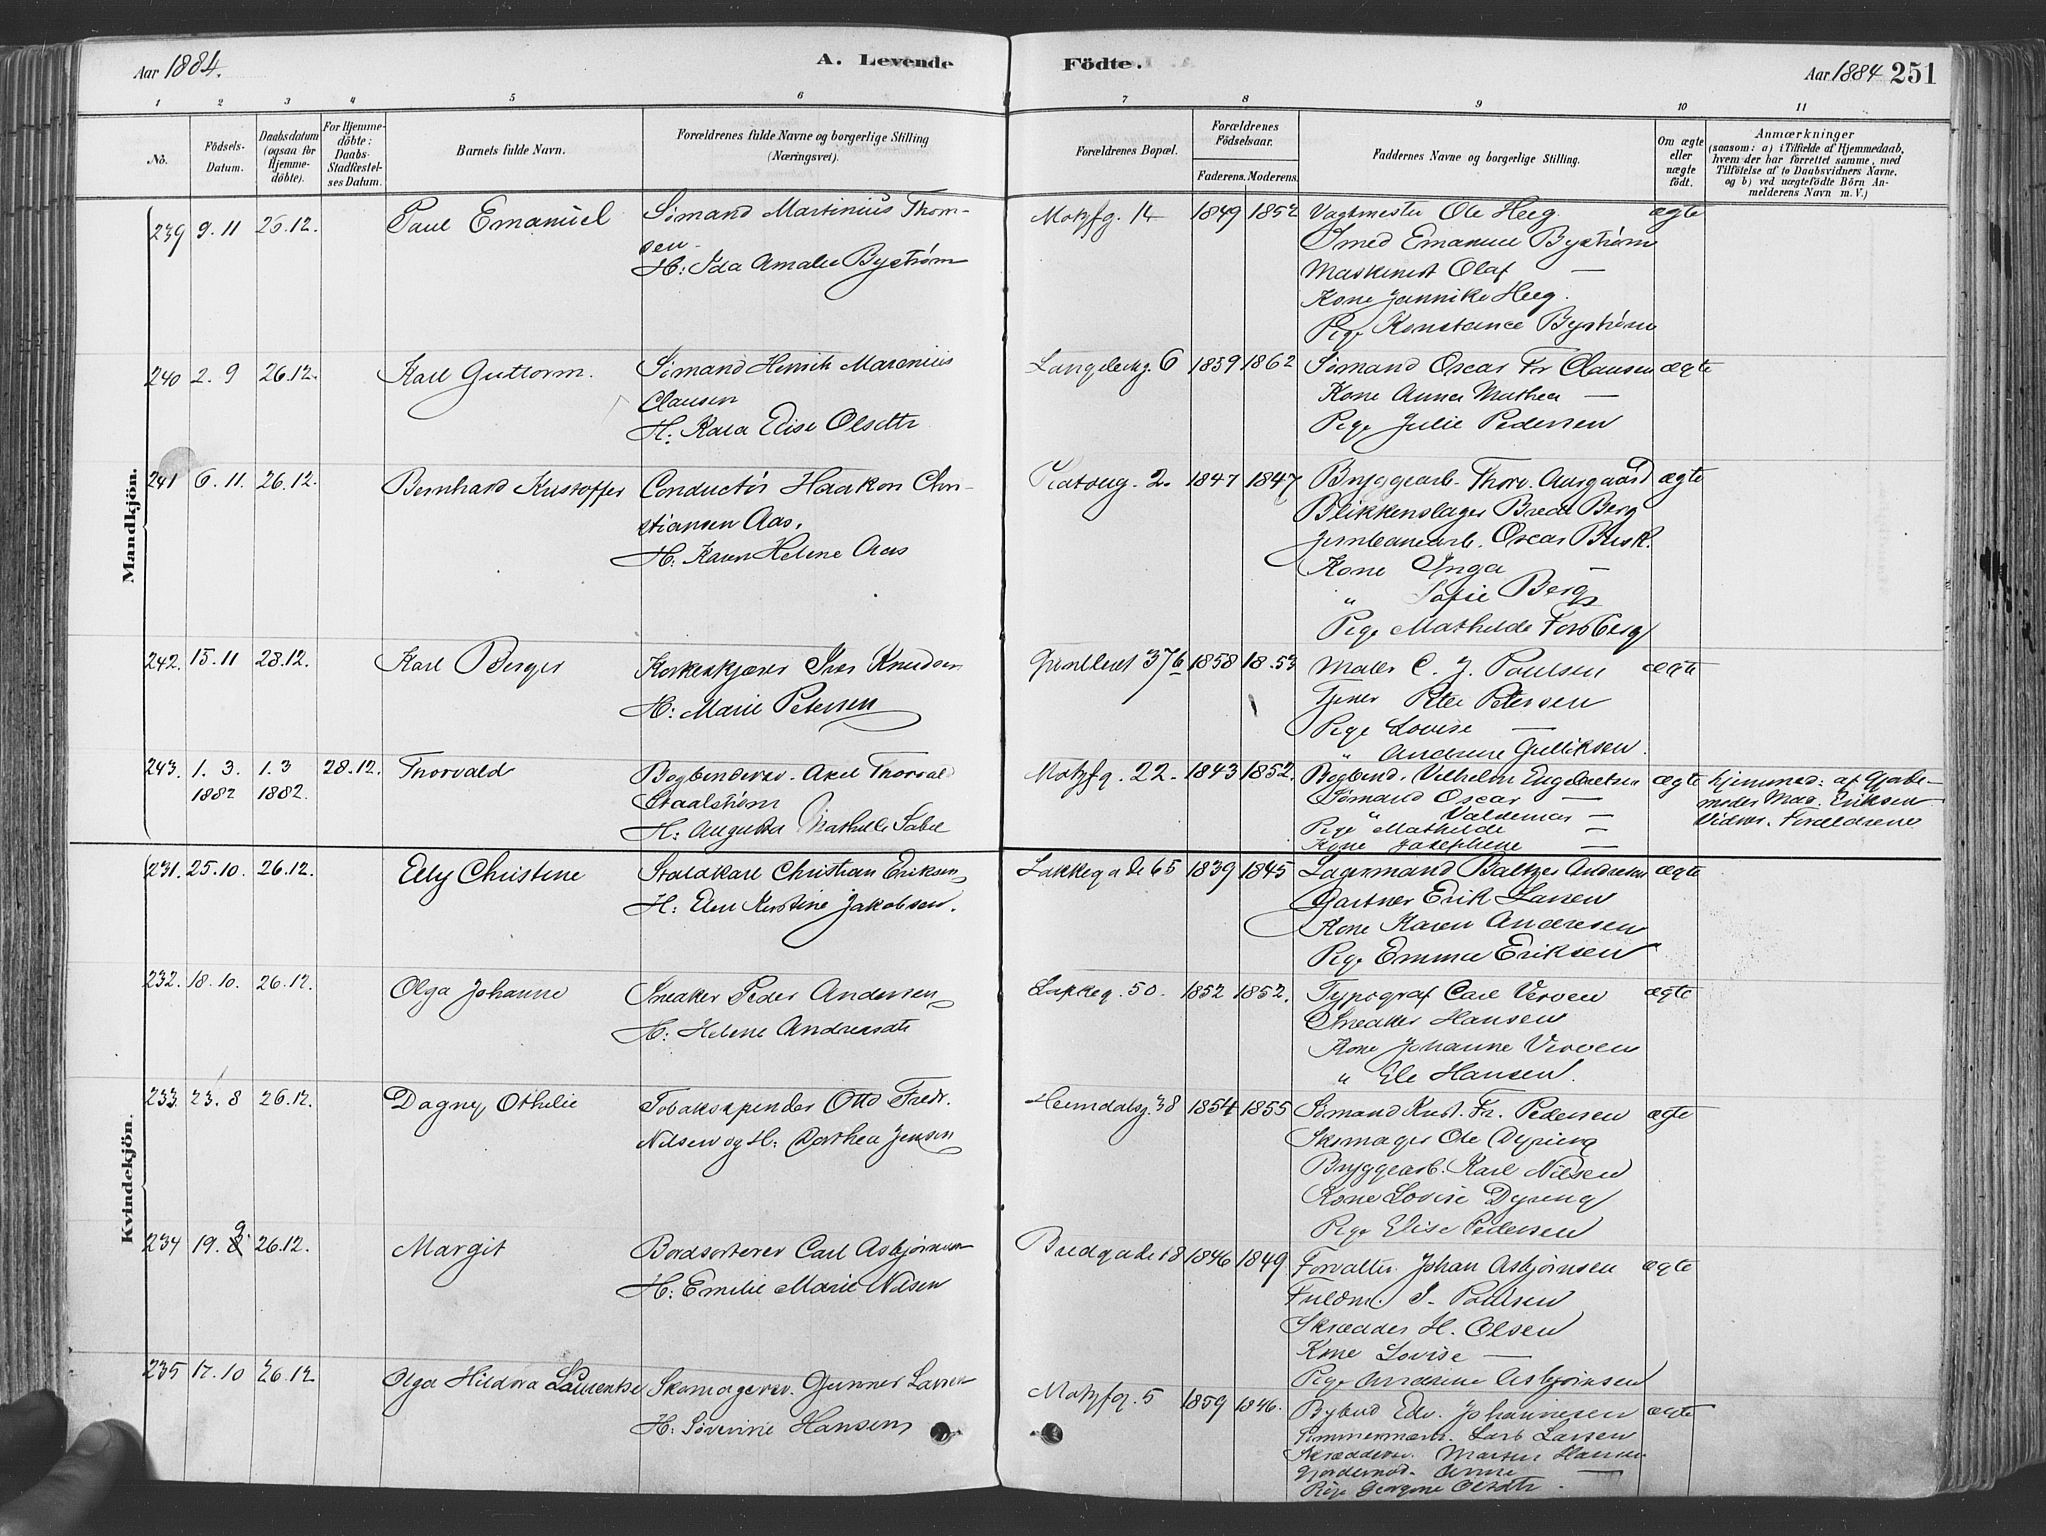 Aar 1884.
A. Levende
Födte.
Aar 1884 251
1 2 3 4 5 6 7 8 9 10 11
No.
Födsels-
Datum.
Daabsdatum
(ogsaa for
Hjemme-
döbte).
For Hjemme-
döbte:
Daabs-
Stadfæstel-
ses Datum.
Barnets fulde Navn.
Forældrenes fulde Navne og borgerlige Stilling
(Næringsvei).
Forældrenes Bopæl.
Forældrenes
Födselsaar.
Faderens. Moderens.
Faddernes Navne og borgerlige Stilling.
Om ægte
eller
uægte
födt.
Anmærkninger
(saasom: a) i Tilfælde af Hjemmedaab,
hvem der har forrettet samme, med
Tilföielse af to Daabsvidners Navne.
og b) ved uægtefödte Börn An-
melderens Navn m. V.)
Mandkjön.
239 9.11 26.12. Paul Emanuel
Sömand Martinius Thom-
sen
H: Ida Amalie Bystrøm
Motzfg. 14 1849 1852
Vagtmester Ole Heeg
Smed Emanuel Bystrøm
Maskinist Olaf —
Kone Jannike Heeg.
Pige Konstance Bystrøm
ægte
240 2.9 26.12. Karl Guttorm.
Sömand Henrik Marenius
Clausen
H: Kara Elise Olsdtr
Langleikg. 6 1859 1862
Sömand Oscar Fr Clausen
Kone Anna Mathea —
Pige Julie Pedersen
ægte
241 6.11. 26.12. Bernhard Kristoffer
Conductör Haakon Chri-
stiansen Aas.
H: Karen Helene Aas
Platoug. 2. 1847 1847
Bryggearb. Thorv. Aasgaard
Blikkenslager Bread Berg
Jernbanearb. Oscar Busk.
Kone Inga —
" Sofie Berg
Pige Mathilde Forsberg
ægte
242. 15.11 28.12. Karl Berger
Korkeskjærer Iver Knudsen
H: Marie Petersen
Grønlleret 376 1858 1853
Maler C. J. Paulsen
Tjener Peter Petersen
Pige Lovise —
" Andrine Gulliksen.
ægte
243. 1.3. 1882 1.3 1882. 28.12. Thorvald
Bogbindersv. Axel Thorvald
Staalstrøm
H: Augusta Mathilde Sabel
Motzfg. 22. 1843 1852.
Bogbind. Vilhelm Engebretsen
Sömand Oscar —
" Valdemar —
Pige Mathilde —
Kone Josephine —
ægte
hjemmed: af Gjorde-
moder Mad. Eriksen
Vidner. Forældrene
Kvindekjön.
231. 25.10. 26.12. Elly Christine
Staldkarl Christian Eriksen
H: Elen Kristine Jakobsen.
Lakkegade 65 1839 1845
Lagermand Baltzer Andresen
Gartner Erik Larsen
Kone Karen Andresen
Pige Emma Eriksen
ægte
232. 18.10. 26.12. Olga Johanne
Snedker Peder Andersen
H: Helene Andreasdtr
Lakkeg. 50. 1852 1852.
Typograf Carl Verven
Snedker Hansen
Kone Johanne Verven
" Ele Hansen.
ægte
233. 23.8 26.12. Dagny Othilie
Tobaksspinder Otto Fredr.
Nilsen og H: Dorthea Jensen
Heimdalsg. 38 1854 1855
Sömand Krist. Fr. Pedersen
Skomager Ole Dyring
Bryggearb. Karl Nilsen
Kone Lovise Dyring
Pige Elise Pedersen
ægte
234 19.9 26.12. Margit
Bordsorterer Carl Asbjørnsen
H: Emilie Marie Nilsen
Bredgade 18 1846 1849
Forvalter Johan Asbjørnsen
Fuldm. S. Paulsen
Skrædder H. Olsen
Kone Lovise —
Pige Andrine Asbjørnsen
ægte
235 17.10 26.12 Olga Hildora Laurentse
Skomagersv. Gunner Larsen
H: Severine Hansen
Motzfg. 5 1859 1846.
Bybud Edv. Johannesen
Tømmermann. Lars Larsen
Skræddersv. Martin Hansen
Gjordemod. Anne —
Pige Georgine Olsdtr.
ægte